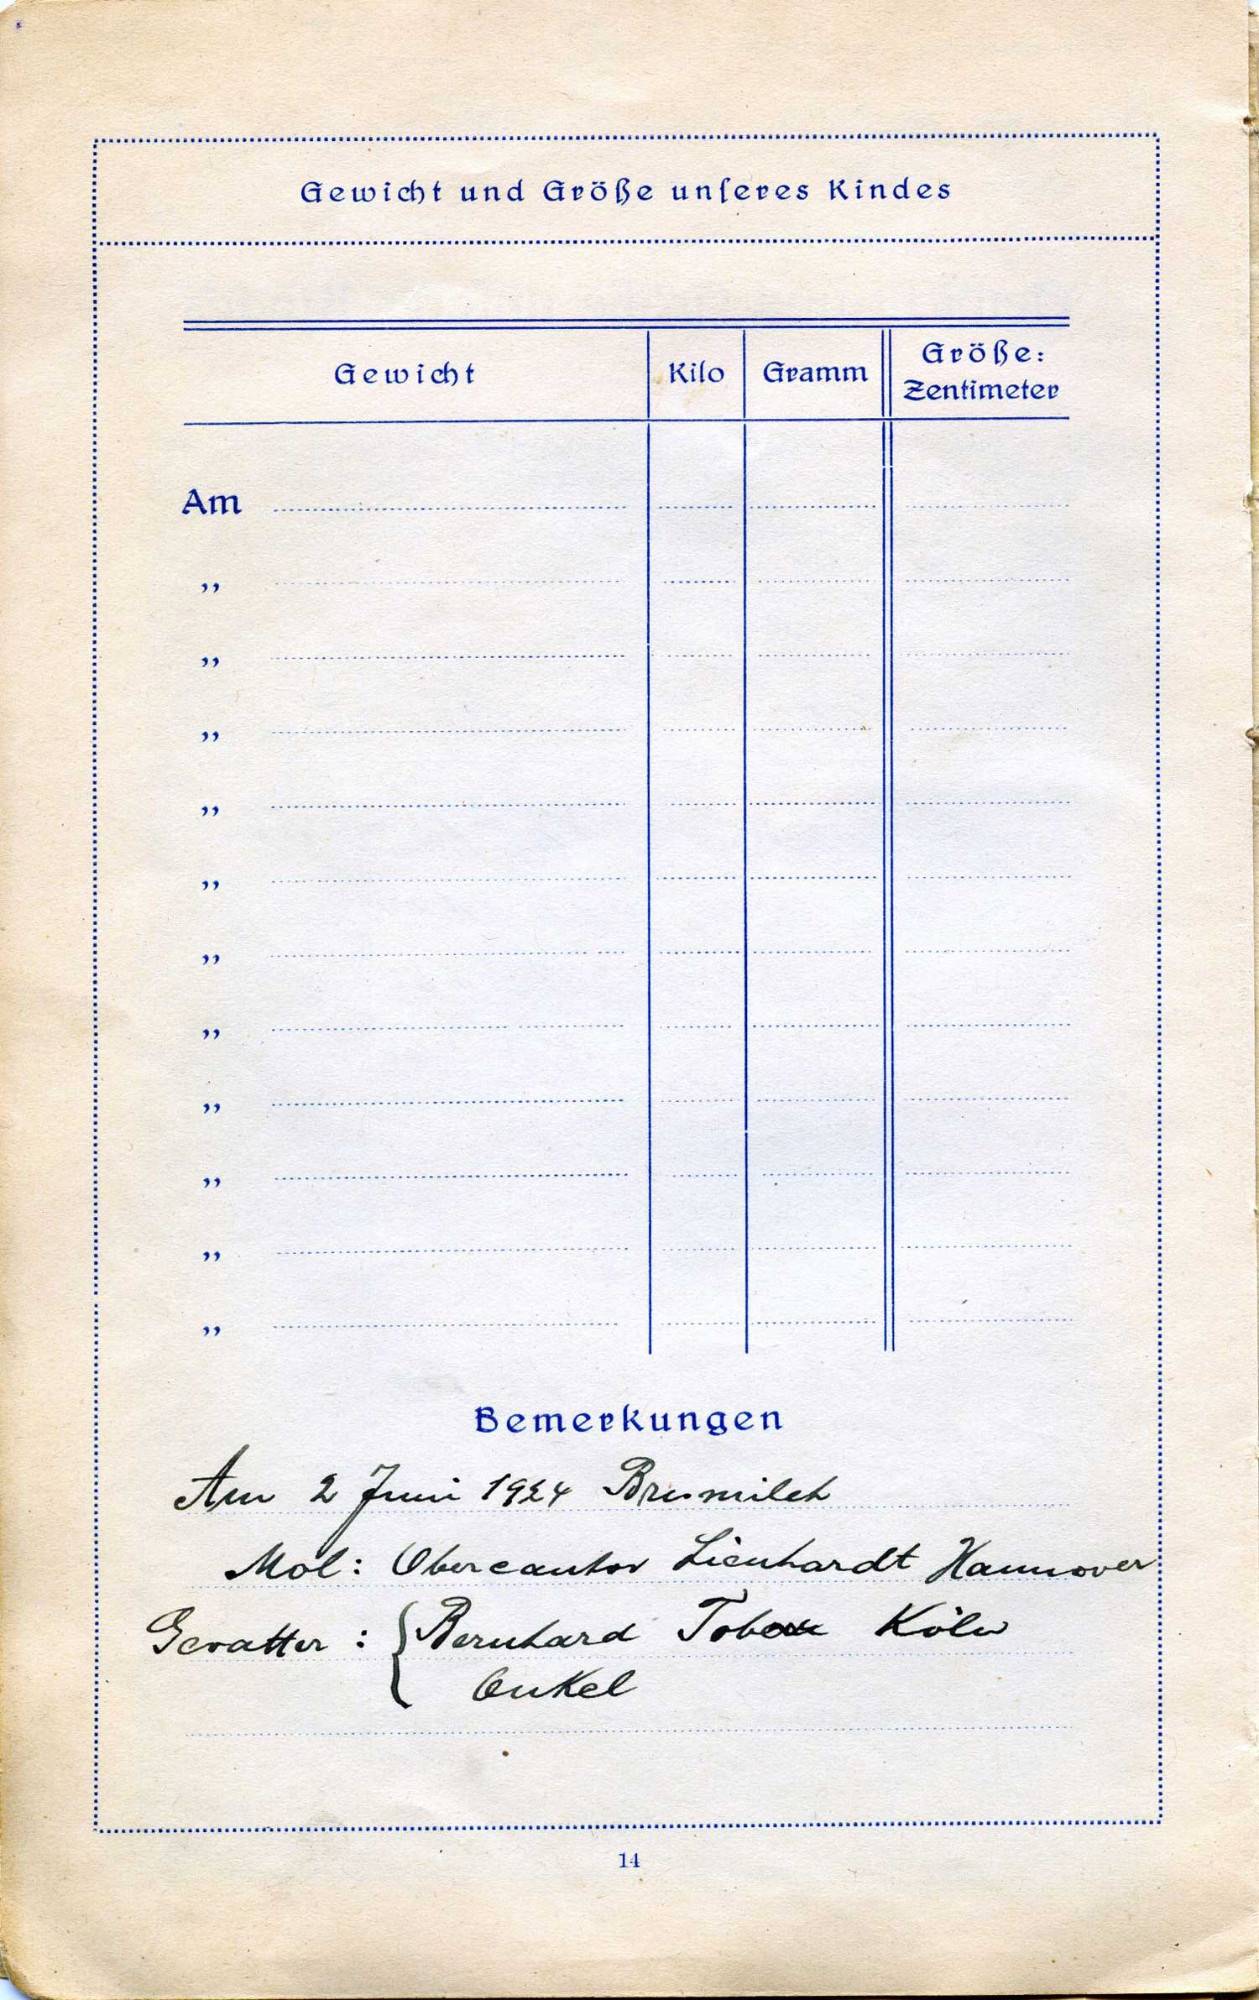 Gewicht und Größe unseres Kindes
Gewicht Kilo Gramm Größe: Zentimeter
Am
„
„
„
„
„
„
„
„
„
„
„
Bemerkungen
Am 2 Juni 1924 Bresmilch
Mol: Obercantor Lienhardt Hannover
Gevatter: { Bernhard Köln
Onkel
14